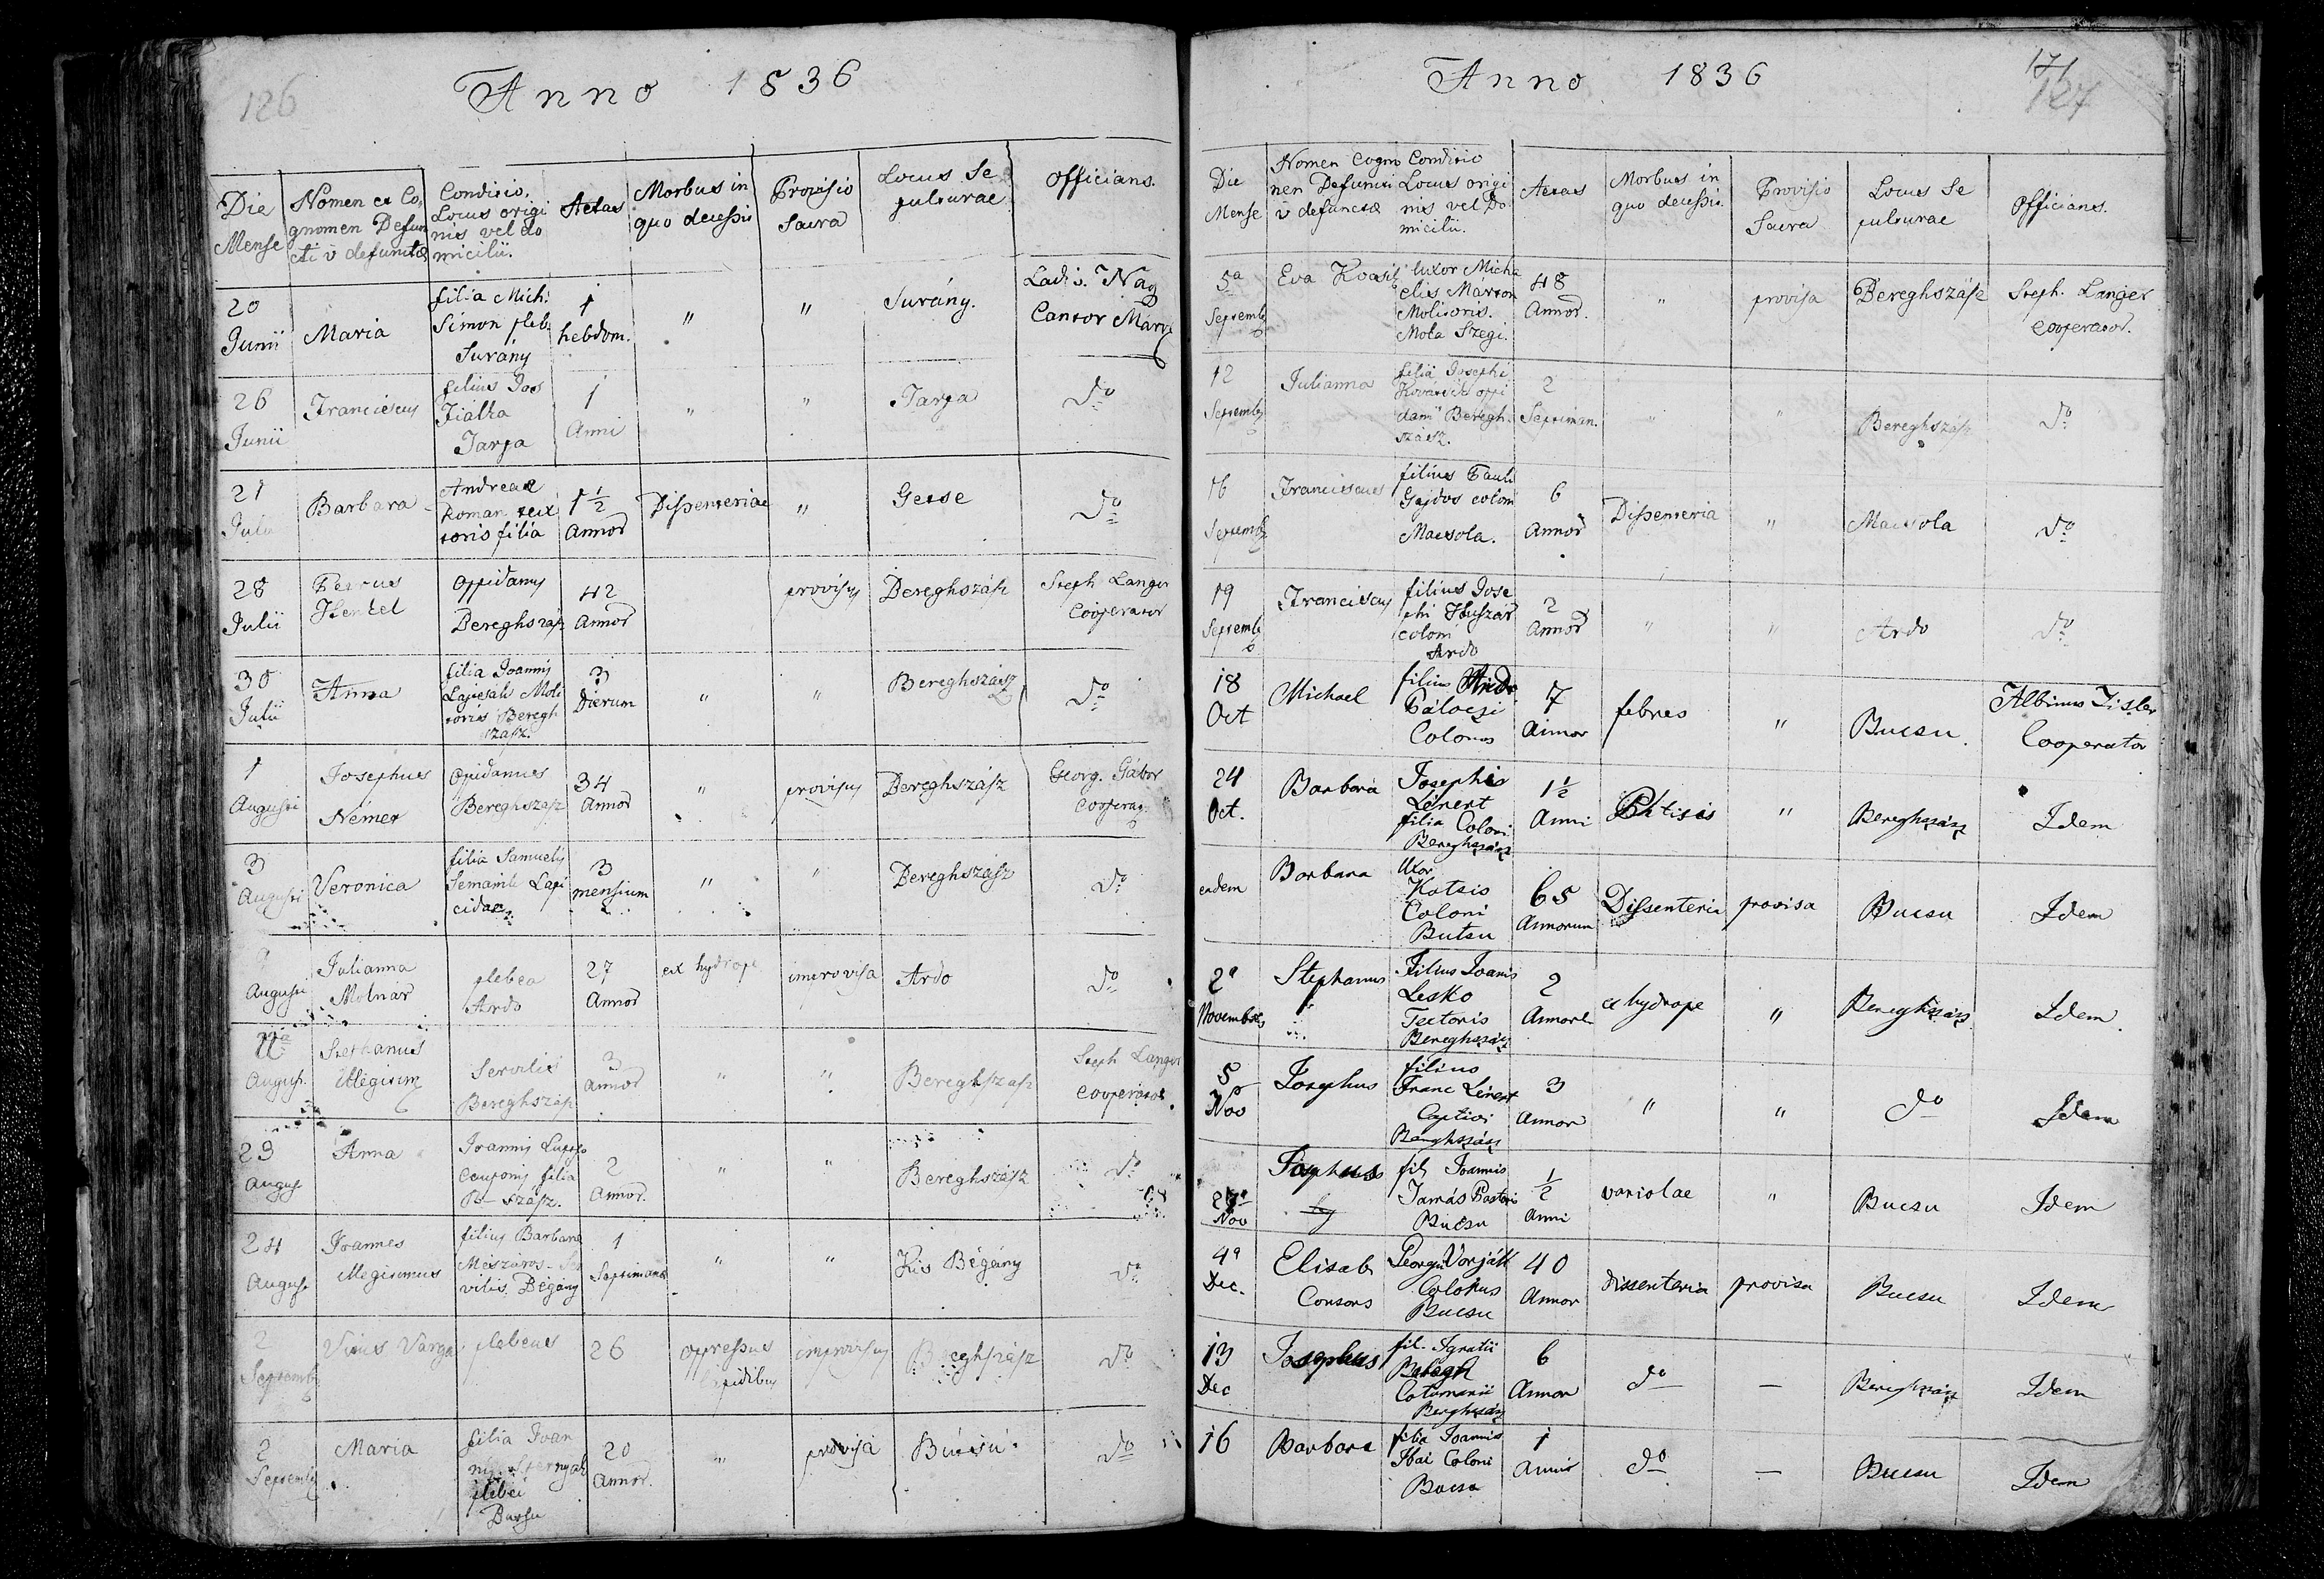 126
Anno 1836
Die Mense
Nomen et Cognomen Defuncti v̄ defunctæ
Conditio, Locus originis vel domicilii.
Aetas
Morbus in quo decessit
Provisio Sacra
Locus Sepulturae
Officians.
20 Junii
Maria
filia Mich: Simon pleb. Surány
1 hebdom.
"
"
Surány.
Ladis. Nag Cantor
26 Junii
Franciscus
filius Jos Fialka Tarpa
1 Anni
"
"
Tarpa
do
21 Julii
Barbara
Andreae Roman textoris filia
1½ Annor
Dissenteriae
"
Getse
do
28 Julii
Petrus
Oppidanus Bereghszász
42 Annor
provisus
Bereghszász
Steph Langer Cooperator
30 Julii
Anna
filia Joannis Molitoris Bereghszász.
3 Dierum
"
"
Bereghszász
do
1 Augusti
Josephus Német
Opidanus Bereghszasz
34 Annor
"
provisus
Bereghszász
Georg. Gábor Cooperat
3 Augusti
Veronica
filia Samuelis Lapicidae
3 mensium
"
"
Bereghszász
do
Augusti
Julianna Molnár
plebea Ardo
27 Annor
ex hydrope
improvisa
Ardo
do
August.
Stephanus Illegitim
Servilis Bereghszász
3 annor
"
"
Bereghszasz
Steph Langer Cooperator
23 August
Anna
Joannis cauponis filia B-szász.
2 Annor.
"
"
Bereghszász
do
24 August
Joannes Illegitimus
filius Barbarae Mészáros Servilis Bégány
1 Septimana
"
"
Kis Bégány
do
2 Septemb
Vitus Varga
plebeus
26
oppressus lapidibus
improvisus
Bereghszász
do
2 Septemb
Maria
filia Joannis plebei Butsu
20 Annor.
"
provisa
Bucsu.
do
Anno 1836
171
127
Die Mense
Nomen Cognomen Defuncti v̄ defunctæ
Conditio Locus originis vel Domicilii.
Aetas
Morbus in quo decessit.
Provisio Sacra
Locus Sepulturae
Officians.
5a Septemb
Eva
Uxor Michaelis Marton Molitoris. Mola Szegi.
48 Annor.
"
provisa
Bereghszász
Steph. Langer Cooperator.
12 Septemb
Julianna
filia Josephi oppidani Bereghszász.
2 Septiman.
"
"
Bereghszász
do
16 Septemb
Franciscus
filius Pauli Gajdos coloni Macsola.
6 Annor
Dissenteria
"
Macsola
do
19 Septemb
Franciscus
filius Josephi Huszár coloni Ardo
2 Annor
"
"
Ardo
do
18 Oct
Michael
filius Andr Pálóczi Colonus
7 Annor
febres
"
Bucsu.
Albinus Zisler Cooperator
24 Oct.
Barbara
Josephi Lénert filia Coloni Bereghszász
1½ Anni
Phtisis
"
Bereghszász
Idem
eadem
Barbara
Uxor Coloni Butsu
65 Annorum
Dissenteria
provisa
Bucsu
Idem
2a Novembris
Stephanus
Filius Joanis Lesko Textoris Bereghszász
2 Annor
ex hydrope
"
Bereghszász
Idem.
5 Nov
Josephus
filius Franc Lénert Captivi Bereghszász
3 Annor
"
"
do
Idem
Nov
Josephus
fil Joannis Tamás Pastoris Bucsu
½ Anni
variolae
"
Bucsu
Idem
4a Dec.
Elisab Consors
Georgii Vorják Colonus Bucsu
40 Annor
Dissenteria
provisa
Bucsu
Idem
13 Dec
Josephus
fil. Ignatii Bereghszász
6 Annor
do
—
Bereghszász
Idem
16
Barbara
filia Joannis Coloni Bucsu
1 Anni
do
—
Bucsu
Idem